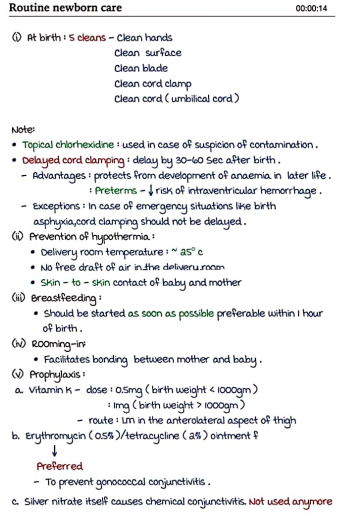 Routine newborn care 00:00:14
(i) At birth : 5 cleans - Clean hands
Clean surface
Clean blade
Clean cord clamp
Clean cord ( umbilical cord )
Note:
• Topical chlorhexidine : used in case of suspicion of contamination .
• Delayed cord clamping : delay by 30-60 Sec after birth .
- Advantages : protects from development of anaemia in later life .
: Preterms - ↓ risk of intraventricular hemorrhage .
- Exceptions : In case of emergency situations like birth
asphyxia,cord clamping should not be delayed .
(ii) Prevention of hypothermia :
• Delivery room temperature : ~ 25° c
• No free draft of air in the delivery room
• Skin - to - skin contact of baby and mother
(iii) Breastfeeding :
• Should be started as soon as possible preferable within 1 hour
of birth .
(iv) Rooming-in:
• Facilitates bonding between mother and baby .
(v) Prophylaxis :
a. Vitamin K - dose : 0.5mg ( birth weight < 1000gm )
: 1mg ( birth weight > 1000gm )
- route : I.m in the anterolateral aspect of thigh
b. Erythromycin ( 0.5% )/tetracycline ( 2% ) ointment f
↓
Preferred
- To prevent gonococcal conjunctivitis .
c. Silver nitrate itself causes chemical conjunctivitis. Not used anymore